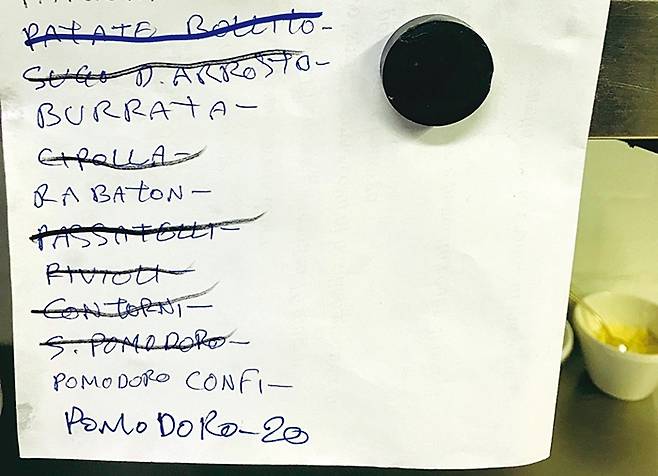 PATATE BOLLITO-
SUGO D. ARROSTO-
BURRATA-
CIPOLLA-
RABATON-
PASSATELLI-
RIVIOLI-
CONTORNI-
S. POMODORO-
POMODORO CONFI-
POMODORO-20